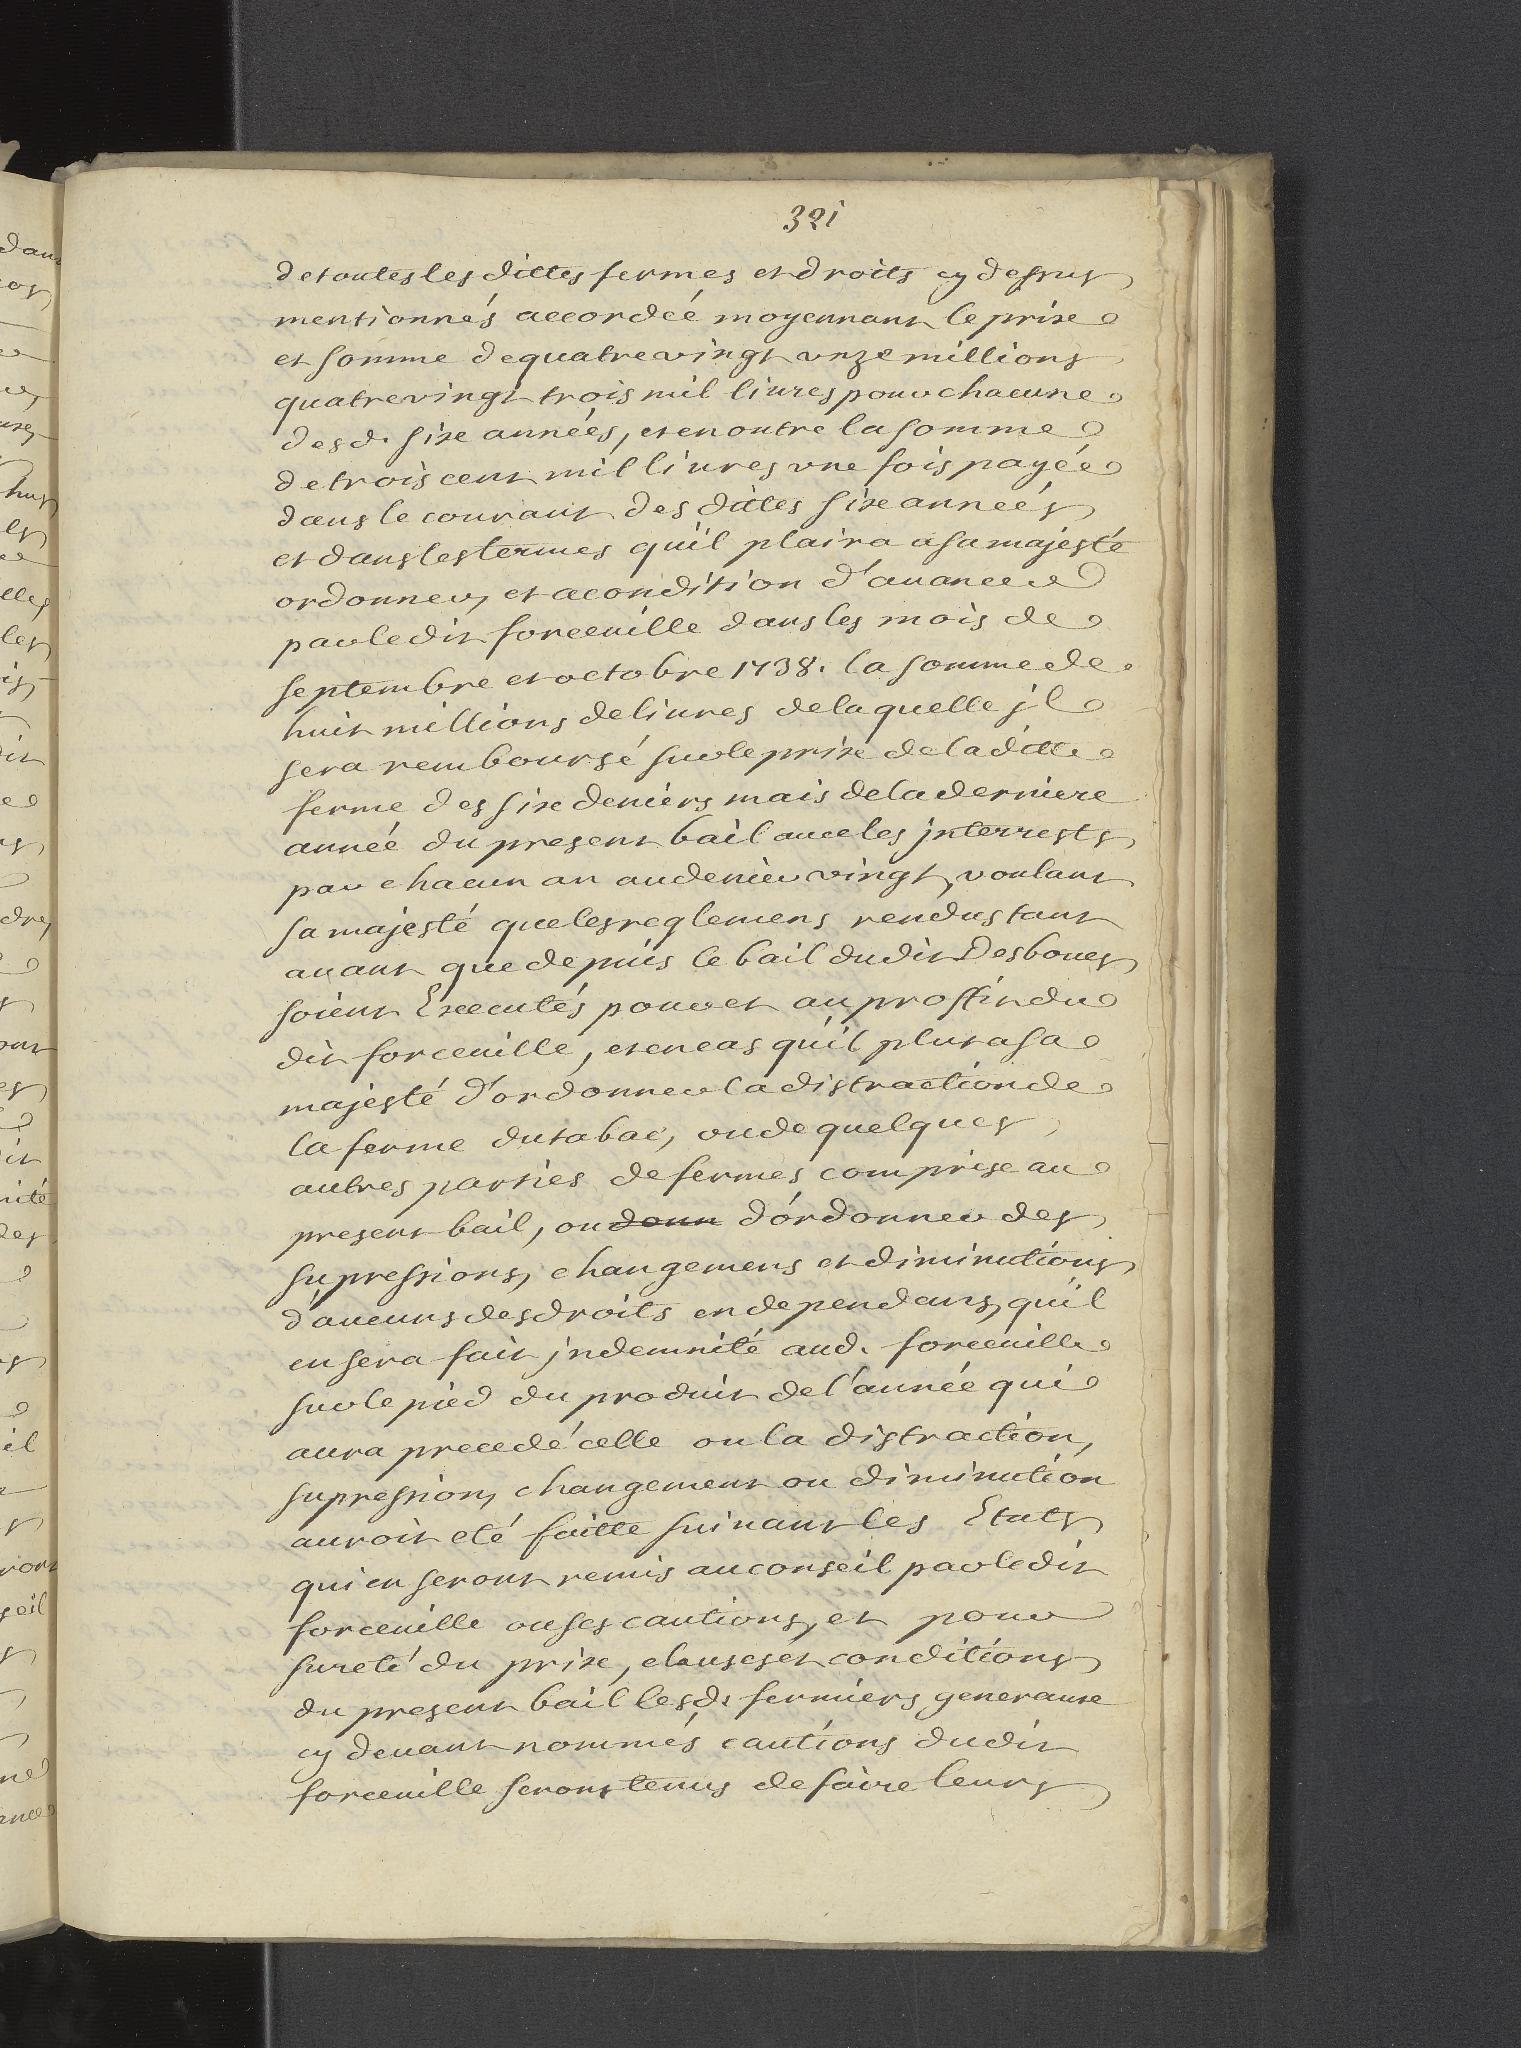 321
de toutes les dittes fermes et droits cy dessus
mentionnés accordéé moyennant le prixe
et somme de quatre vingt unze millions
quatre vingt trois mil livres pour chacune
desd. sixe années, et en outre la somme
de trois cent mil livres une fois payée
dans le courant des dittes sixe années
et dans les termes qu'il plaira a sa majesté
ordonner, et a condition d'avancer
par le dit forceville dans les mois de
septembre et octobre 1738. la somme de
huit millions de livres de laquelle jl
sera remboursé sur le prixe de la ditte
ferme des sixe deniers mais de la derniere
année du present bail avec les jnterrests
par chacun an au denier vingt, voulant
sa majesté que les reglemens rendus tant
avant que depuis le bail du dit Desboves
soient Executés pour et au proffit du
dit forceville, et en cas qu'il plut a sa
majesté d'ordonner la distraction de
la ferme du tabac, ou de quelques
autres parties de fermes comprise au
present bail, ou donn d'ordonner des
supressions, changemens et diminutions
d'aucuns des droits en dependans, qu'il
en sera fait jndemnité aud. forceville
sur le pied du produit de l'année qui
aura precedé celle ou la distraction,
supression, changement ou diminution
auroit eté faitte suivant les Etats
qui en seront remis au conseil par le dit
forceville ou ses cautions, et pour
sureté du prixe, clauses et conditions
du present bail lesd. fermiers generauxe
cy devant nommés cautions du dit
forceville seront tenus de faire leurs